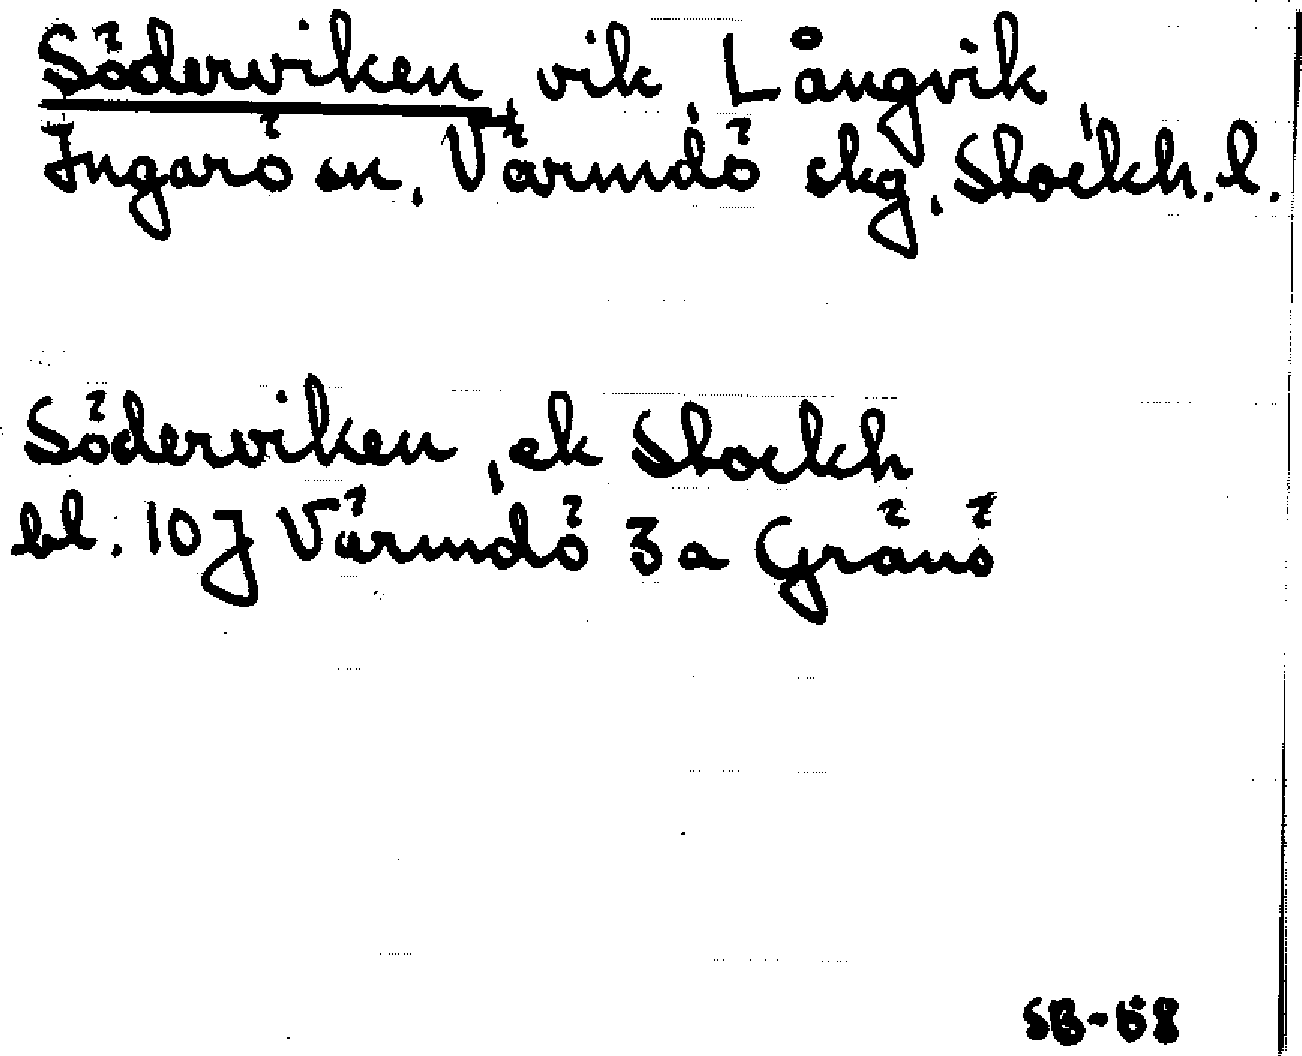 Söderviken, vik, Långvik,
Ingarö sn, Värmdö skg, Stockh.l.
Söderviken, ek Stockh
bl. 10J Värmdö 3a Gränö
SB-68